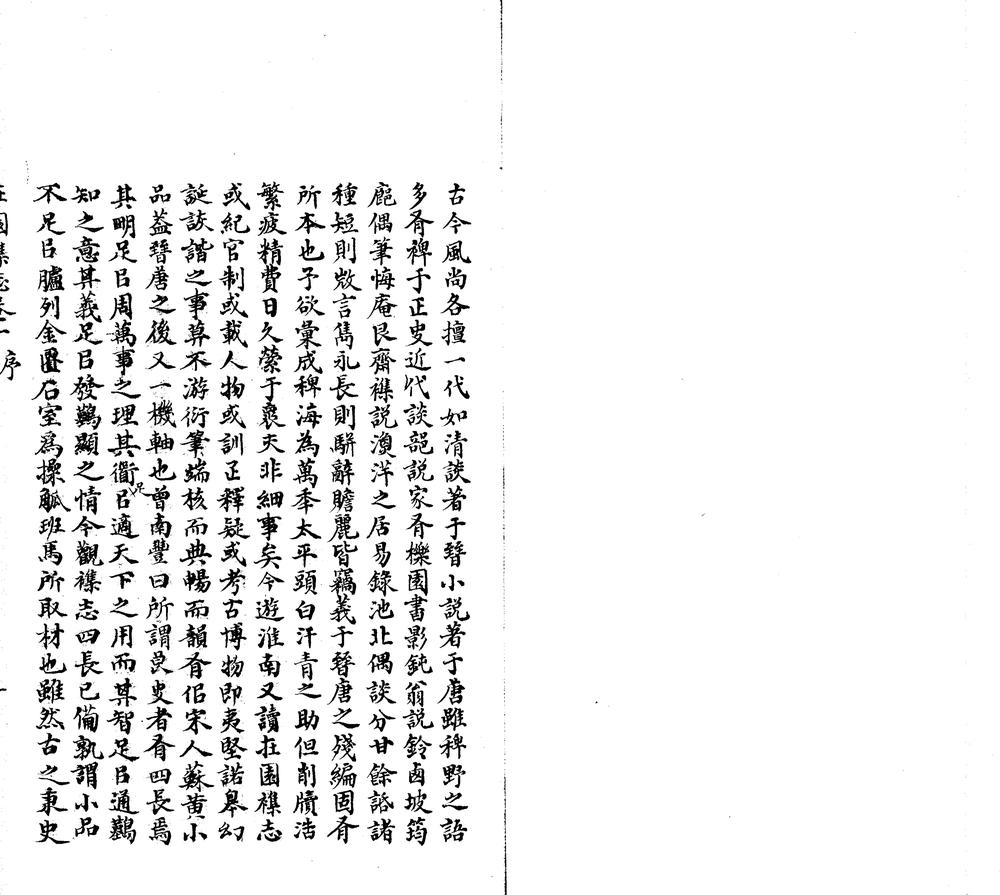 古今風尚各擅一代如清談著于晉小説著于唐雖稗野之語
多有裨于正史近代談部説家有櫟園書影鈍翁説鈴鹵坡筠
廊偶筆悔庵艮齋襍説漁洋之居易錄池北偶談分甘餘話諸
種短則微言雋永長則駢辭贍麗皆竊義于晉唐之殘編固有
所本也予欲彙成稗海為萬季太平頭白汗青之助但削牘浩
繁疲精費日久縈于衷夫非細事矣今遊淮南又讀在園襍志
或紀官制或載人物或訓正釋疑或考古博物即夷堅諾皋幻
誕詼諧之事莫不游衍筆端核而典暢而韻有佀宋人蘇黃小
品葢晉唐之後又一機軸也曾南豐曰所謂良史者有四長焉
其明足㠯周萬事之理其衟足㠯適天下之用而其智足㠯通難
知之意其義足㠯發難顯之情今觀襍志四長已備孰謂小品
不足㠯臚列金匱石室爲操觚班馬所取材也雖然古之秉史
在園襍志卷一 序 一